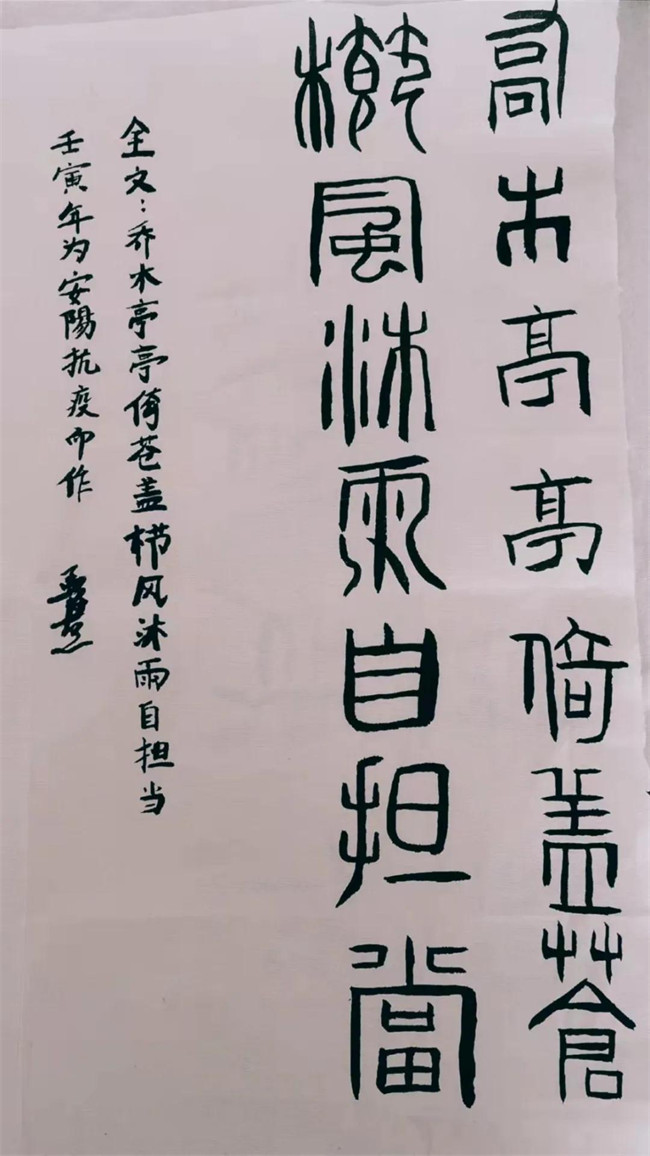 乔木亭亭倚盖苍
栉风沐雨自担当
全文：乔木亭亭倚苍盖栉风沐雨自担当
壬寅年为安陽抗疫而作